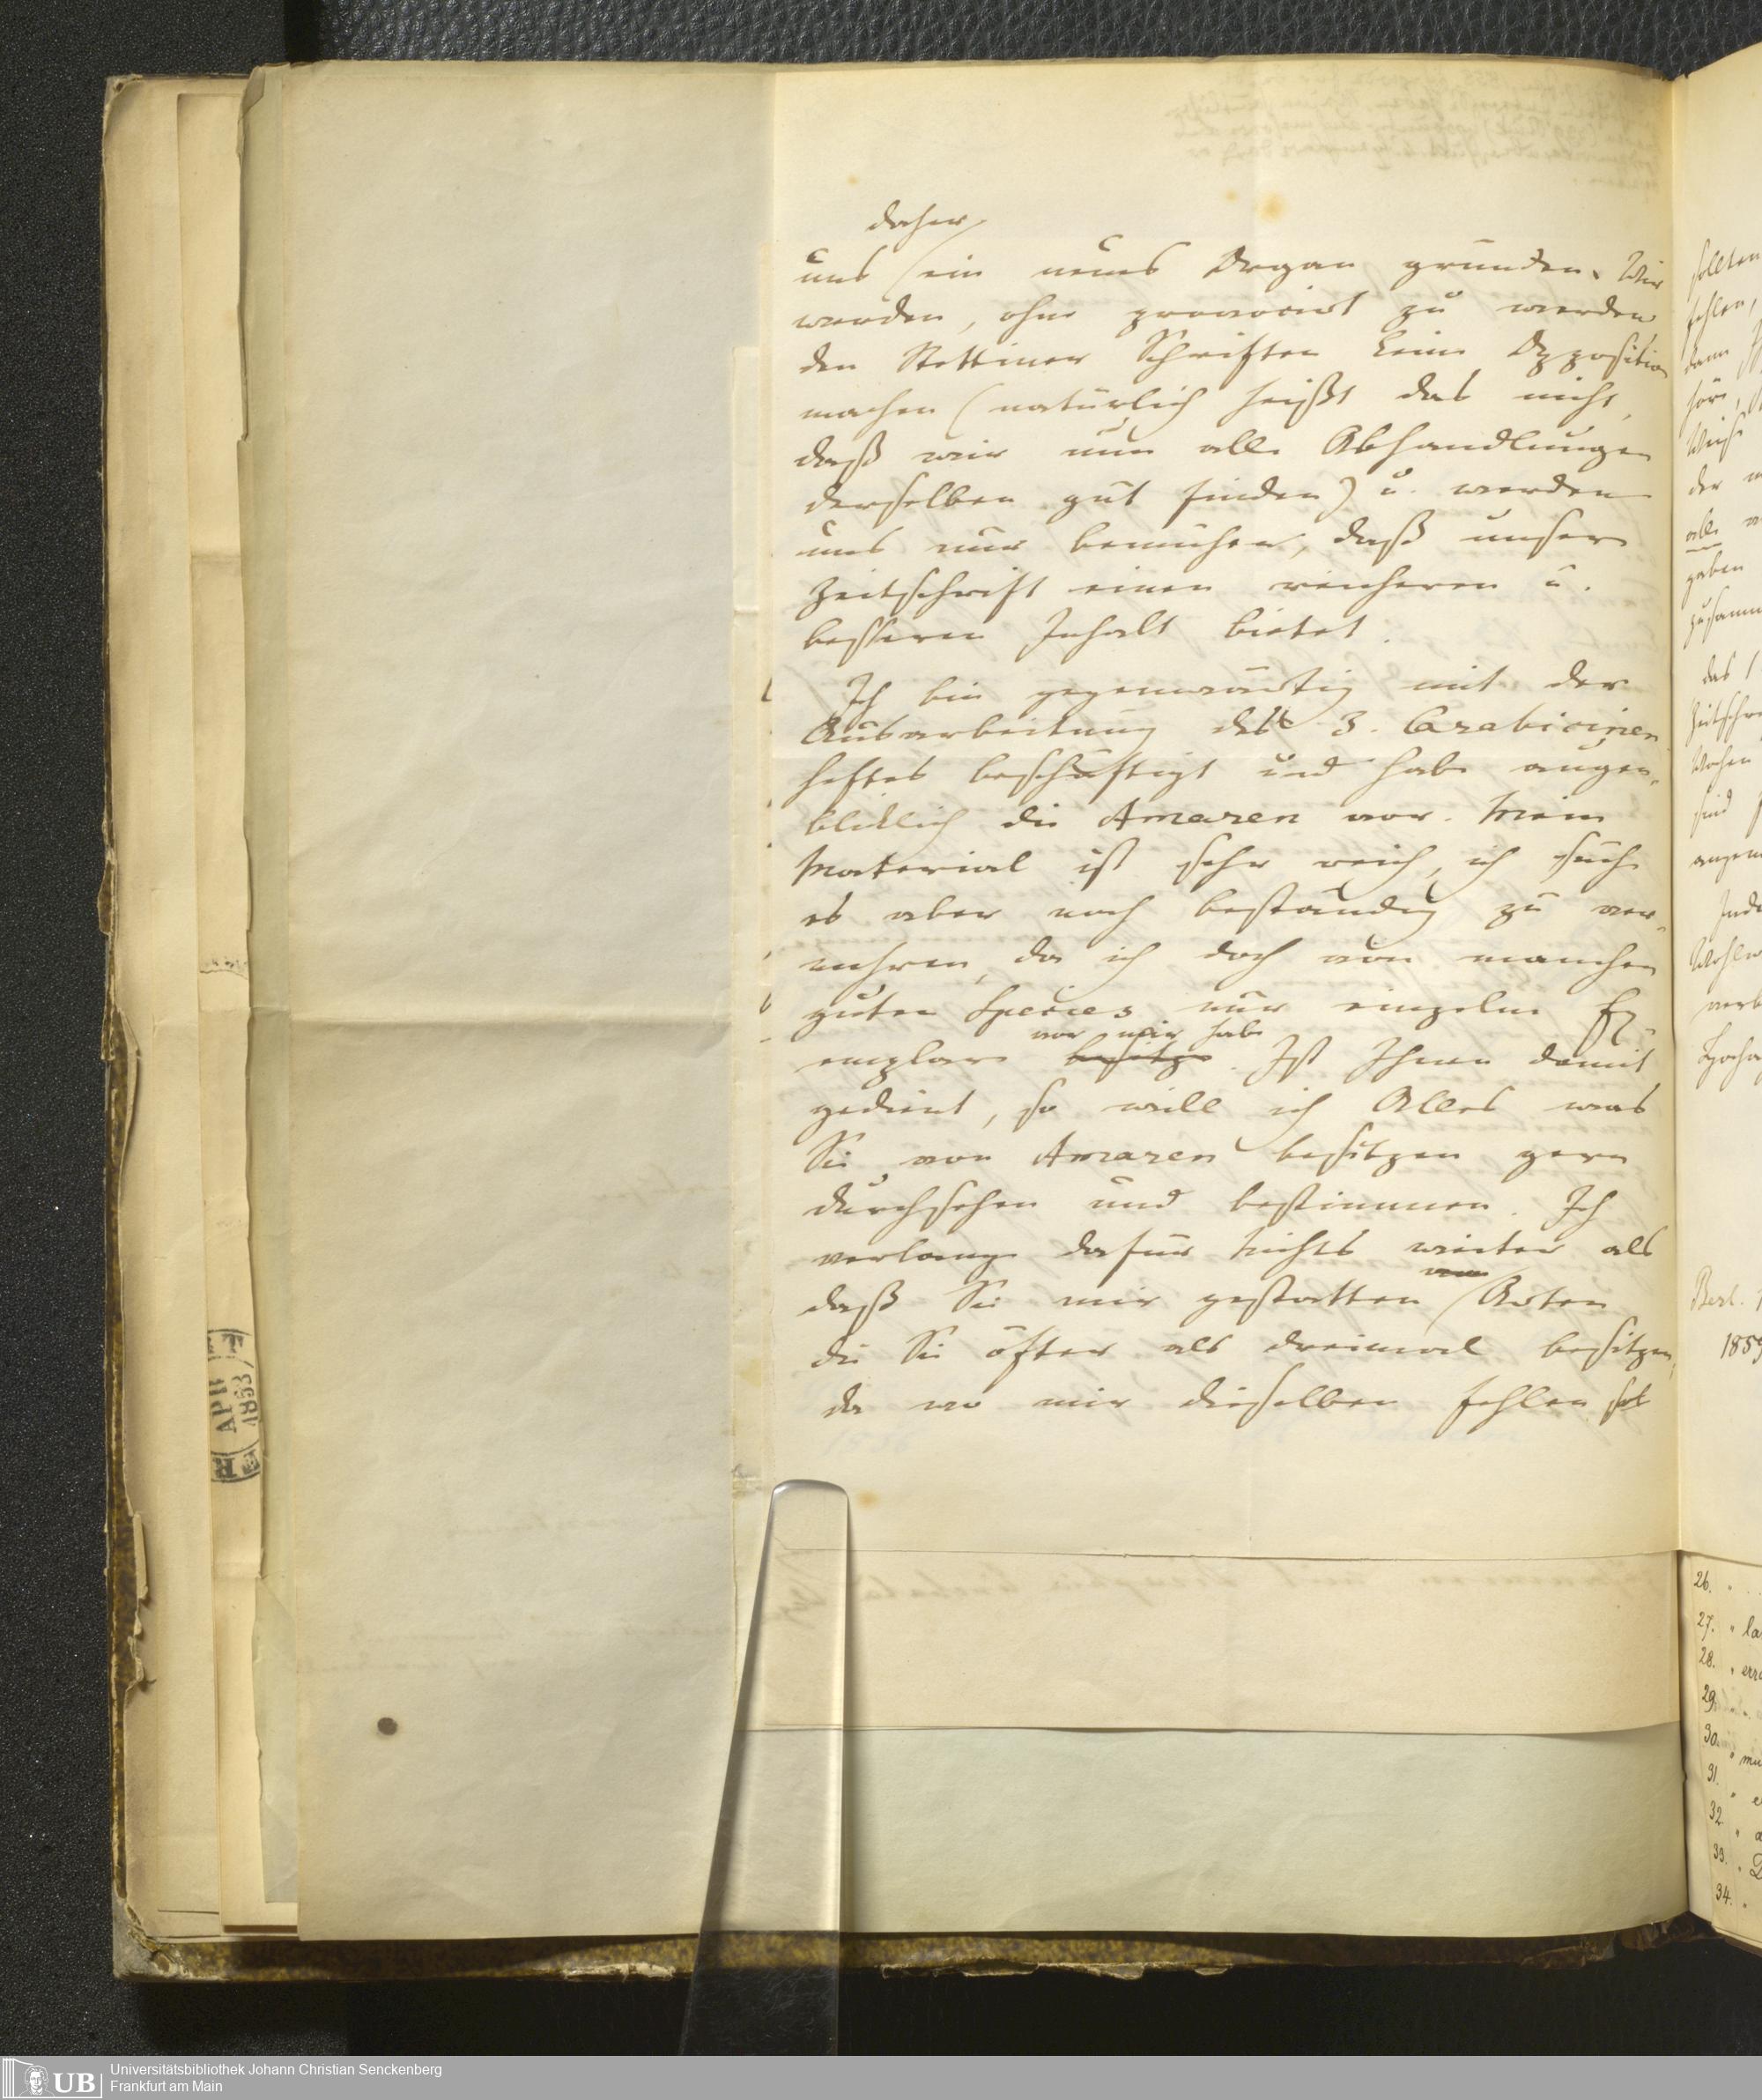 daher
uns ein neues Organ gründen. Wir
werden, ohne provocirt zu werden,
den Stettiner Schriften keine Opposition
machen (natürlich heißt das nicht,
daß wir nun alle Abhandlungen
derselben gut finden) u. werden
uns nur bemühen, daß unsere
Zeitschrift einen reicheren u.
besseren Inhalt bietet.
Ich bin gegenwärtig mit der
Ausarbeitung des 3. Carabicinen
heftes beschäftigt und habe augen-
blicklich die Amaren vor. Mein
Material ist sehr reich, ich suche
es aber noch beständig zu ver-
mehren, da ich doch von manchen
guten Species nur einzelne Ex-
vor mir habe
emplare besitze. Ist Ihnen damit
gedient, so will ich Alles was
Sie von Amaren besitzen gern
durchsehen und bestimmen. Ich
verlange dafür Nichts weiter als
daß Sie mir gestatten Arten
die Sie öfter als dreimal besitzen,
da wo mir dieselben fehlen
sollten
fehlen,
dann
der
alle
gaben
das
Wochen
sind
Berl.
1859
26.
27. " la
28.
29.
30.
31.
32
33.
34.
APR
1853
UB Universitätsbibliothek Johann Christian Senckenberg
Frankfurt am Main